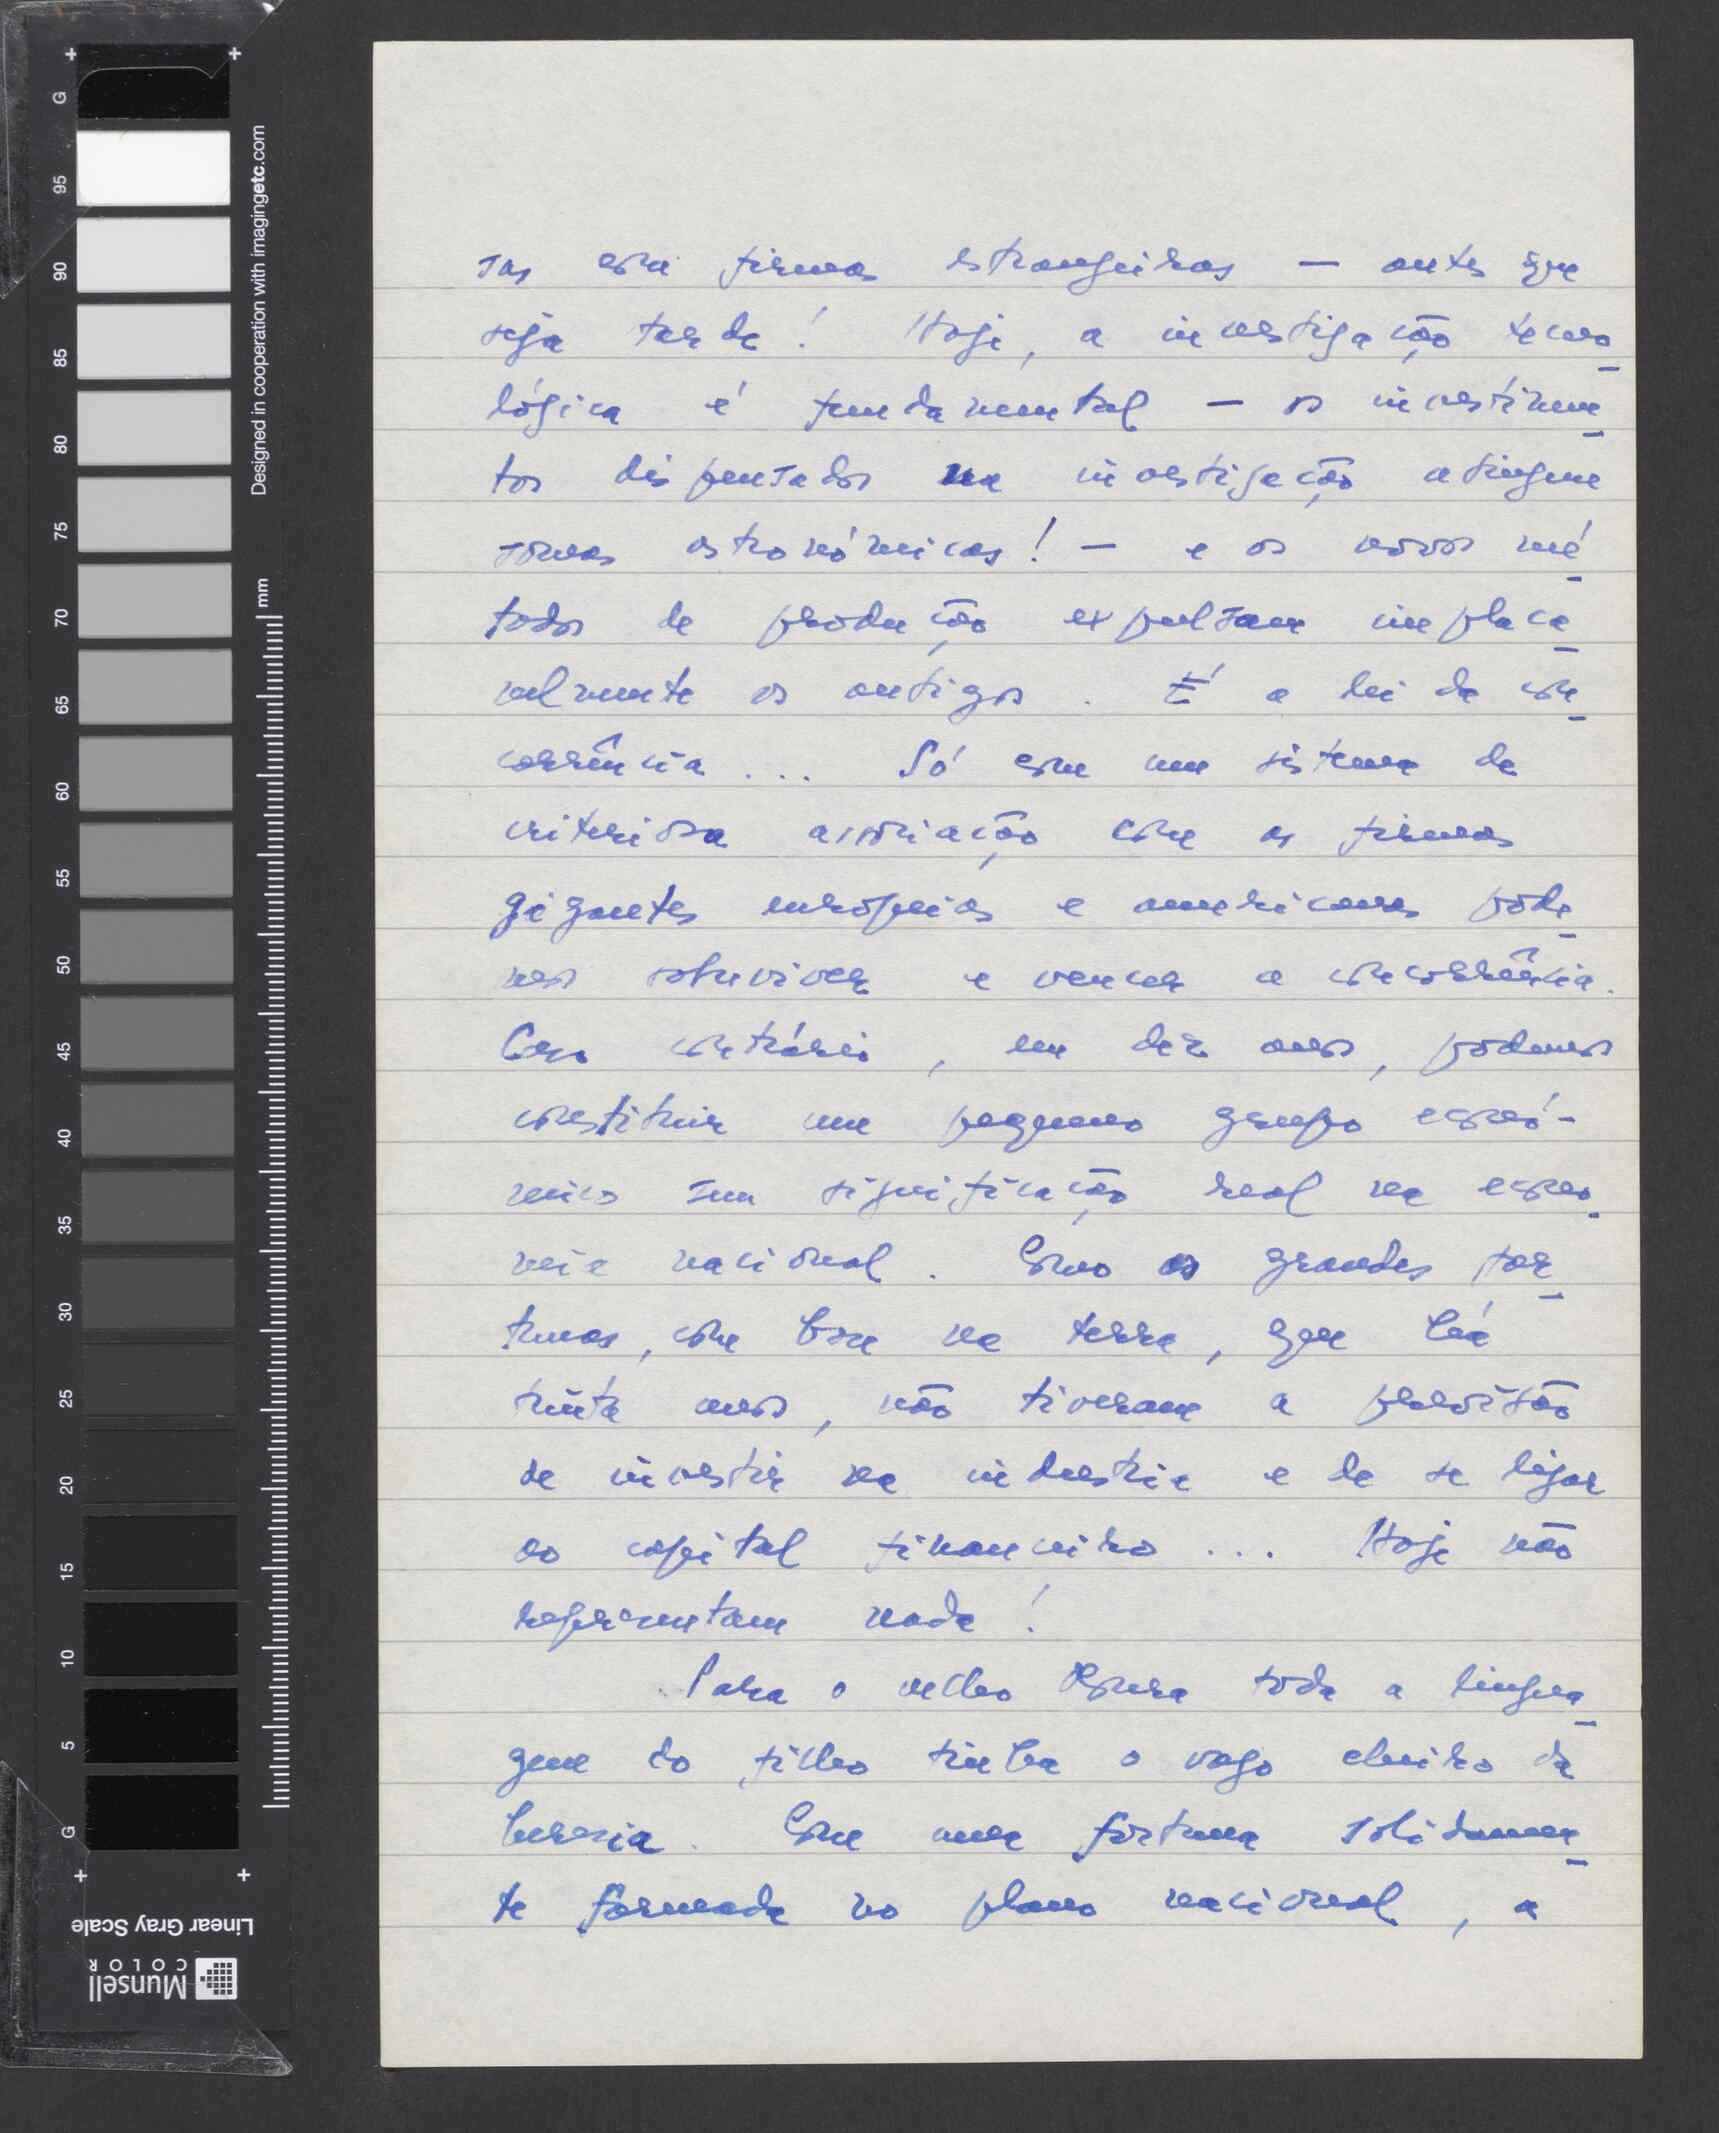 sas com firmas estrangeiras — antes que
seja tarde! Hoje, a investigação tecno
lógica é fundamental — os investimen
tos dispensados na investigação atingem
somas astronómicas! — e os novos mé
todos de produção expulsam implaca
velmente os antigos. É a lei da con
corrência... Só com um sistema de
criteriosa associação com as firmas
gigantes europeias e americanas pode
mos sobreviver e vencer a concorrência.
Caso contrário, em dez anos, podemos
constituir um pequeno grupo econó-
mico sem significação real na econo
mia nacional. Como as grandes for
tunas, com base na terra, que há
trinta anos, não tiveram a previsão
de investir na industria e de se ligar
ao capital financeiro... Hoje não
representam nada!
Para o velho toda a lingua
gem do filho tinha o vago cheiro da
heresia. Com uma fortuna solidamen
te formada no plano nacional, a
G
95
90
85
80
75
70
65
60
55
50
45
40
35
30
25
20
15
10
5
G
Designed in cooperation with imagingetc.com
mm
Linear Gray Scale
Munsell
COLOR